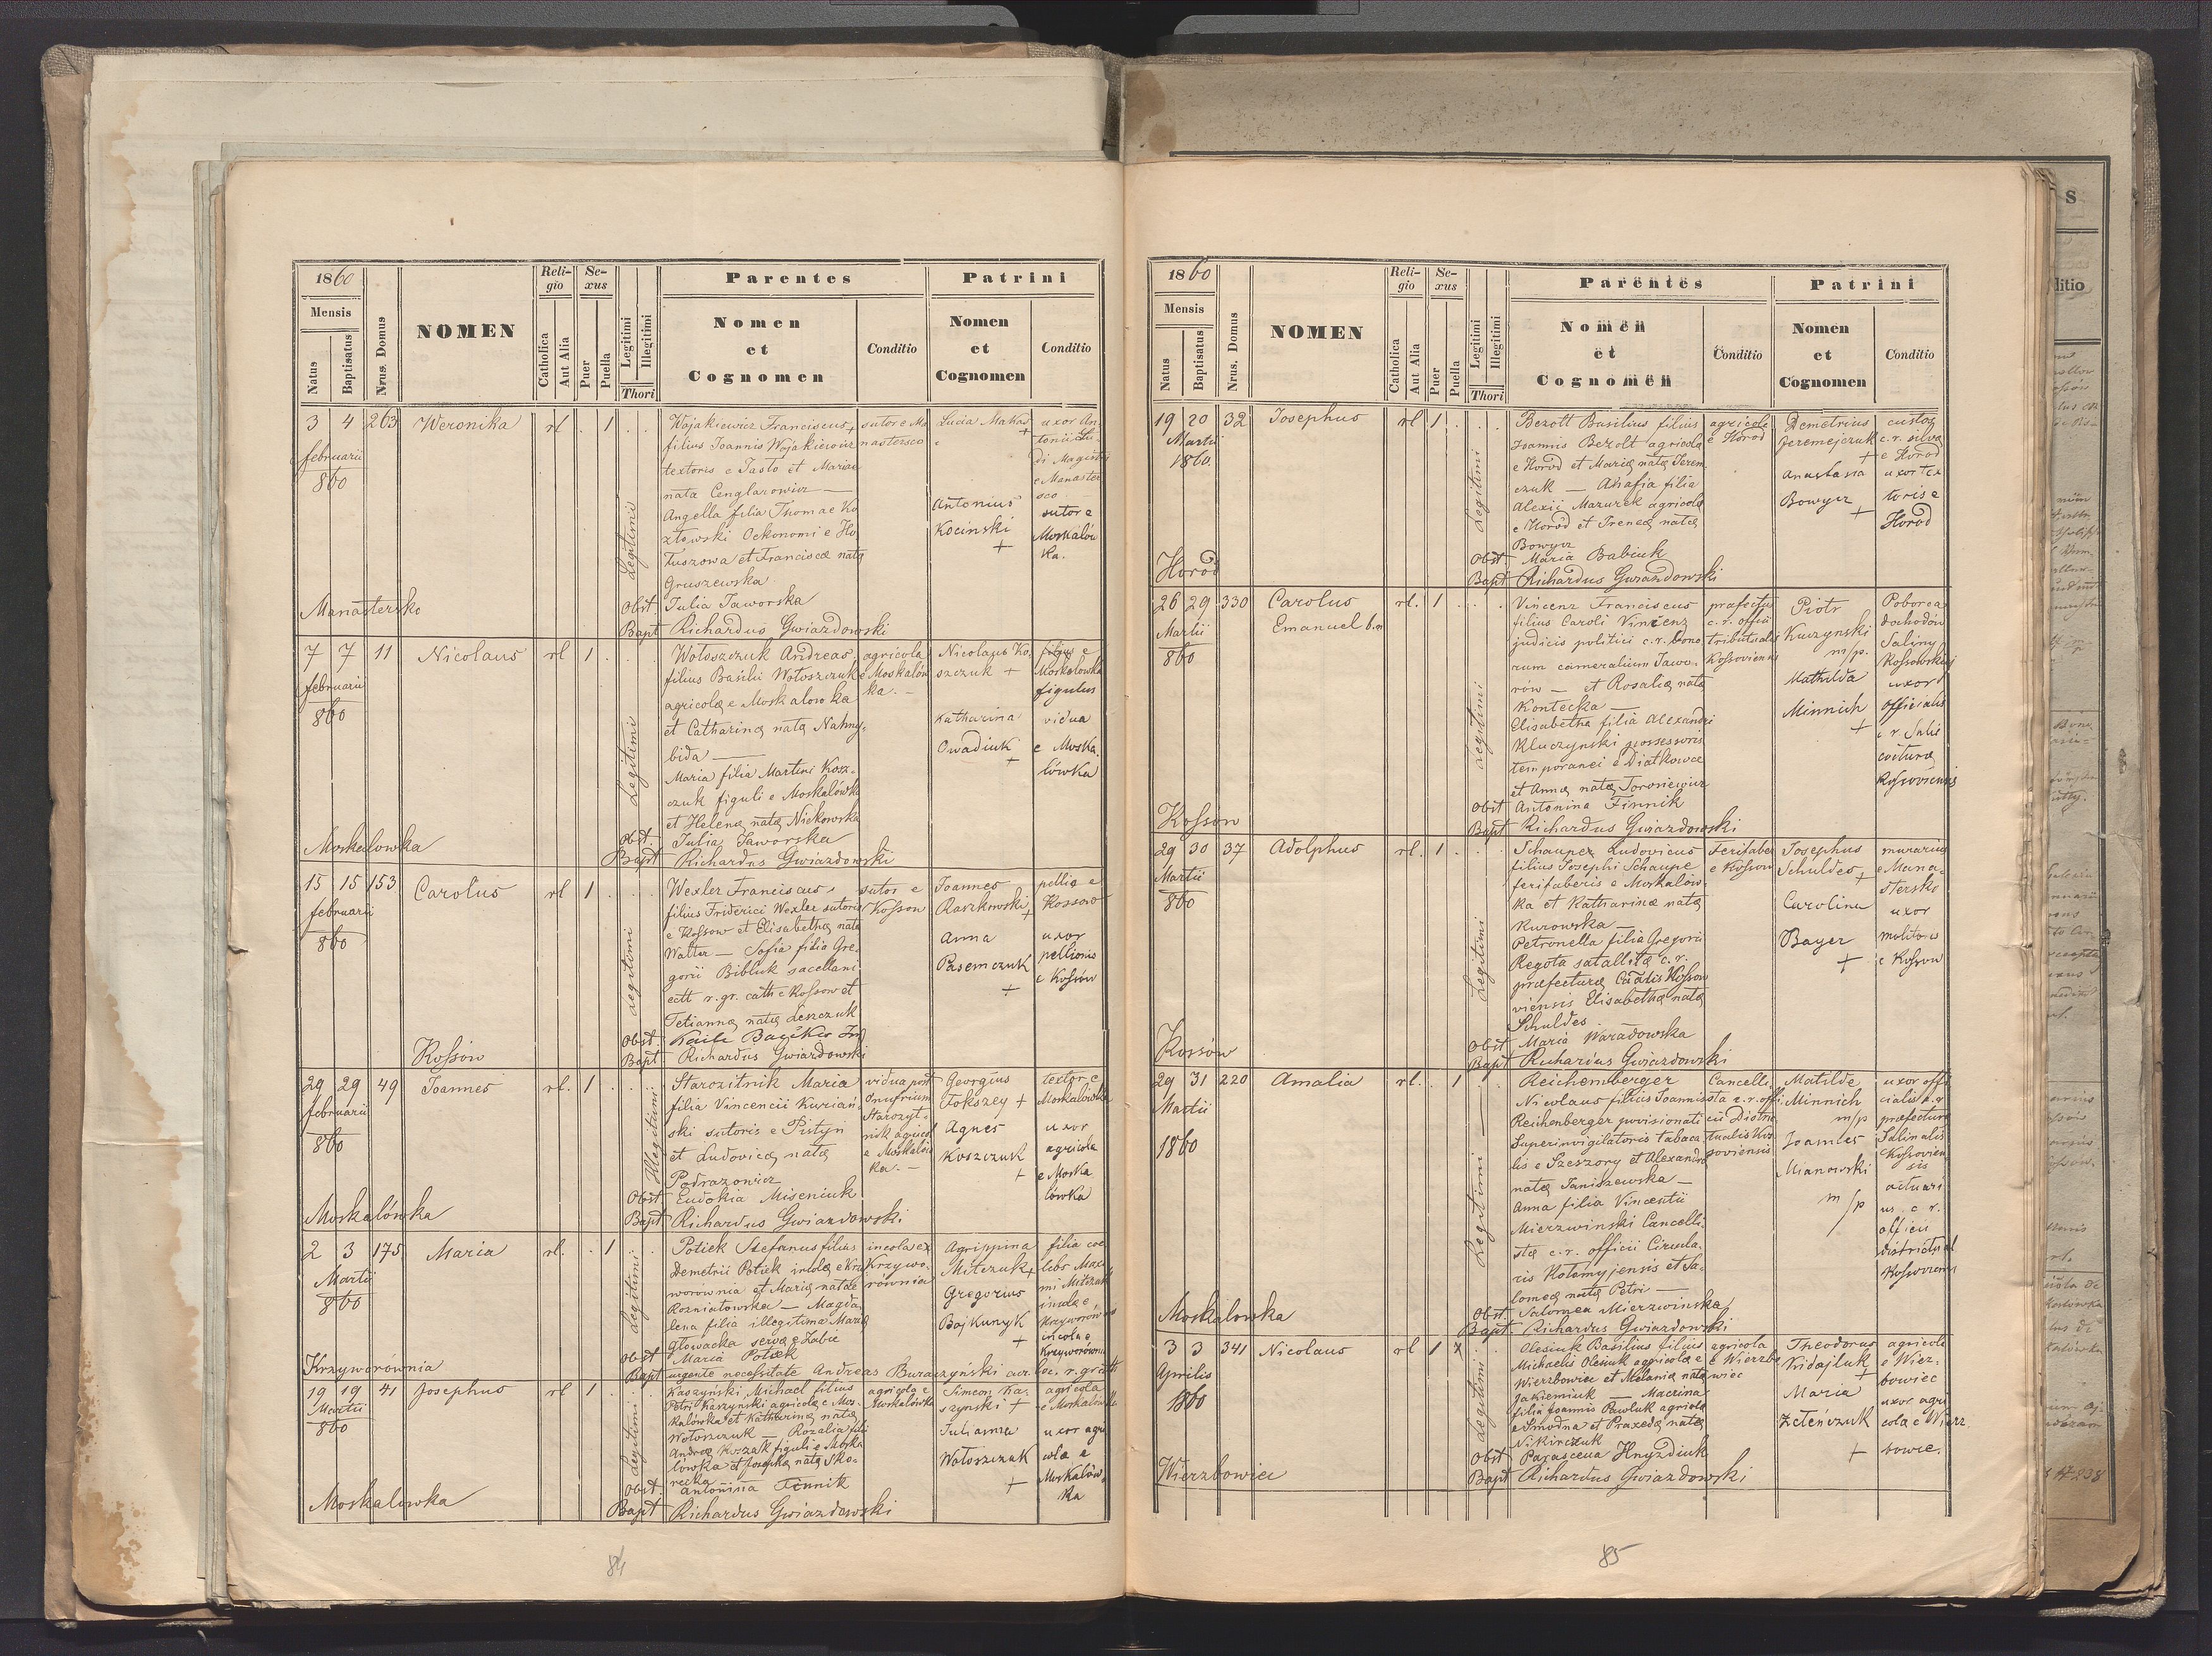 1860
Mensis
Natus
Baptisatus
Nrus. Domus
NOMEN
Reli-
gio
Catholica
Aut Alia
Se-
xus
Puer
Puella
Legitimi
Illegitimi
Thori
Parentes
Nomen
et
Cognomen
Conditio
Patrini
Nomen
et
Cognomen
Conditio
3 4 263 Weronika rl 1
februarii
860
Manastersko
Legitimi
Wojakiewicz Franciscus
filius Joannis Wojakiewicz
textoris e Jaslo et Mariae
nata Cenglarowicz —
Angella filia Thomae Ko
złowski Oekonomi e Ho
tuszowa et Francisca nata
Gruszewska
Obst. Julia Jaworska
Bapt Richardus Gwiazdowski
sutor e Ma
nastersco
Lucia Makas
+
Antonius
Kocinski
+
uxor An-
tonii Lu-
di Magistri
e Manaster
sco
sutor e
Moskalów
ka.
7 7 11 Nicolaus rl 1
februarii
860
Moskalowka
Legitimi
Wołoszczuk Andreas
filius Basilii Wołoszczuk
agricolę e Moskalowka
et Catharinę natę Nahny-
bida —
Maria filia Martini Kosz-
czuk figuli e Moskalówka
et Helenę natę Nickowska
Obst. Julia Jaworska
Bapt Richardus Gwiazdowski
agricola
e Moskalów
ka. —
Nicolaus Ko-
szczuk +
Katharina
Owadiuk
+
filius e
Moskalowka
figulus
vidua
e Moska-
lówka
15 15 153 Carolus rl 1
februarii
860
Kossów
Legitimi
Wexler Franciscus,
filius Friderici Wexler sutoris
e Kossow et Elisabethę nata
Walter — Sofia filia Gre-
gorii Bibluk sacellani
ectt r. gr. cath e Kossow et
Tetiannę natę Leszczuk
Obst.
Bapt Richardus Gwiazdowski
sutor e
Kossow
Joannes
Raszkowski
+
Anna
Pasemczuk
+
pellio e
Kossow
uxor
pellionis
e Kossów
29 29 49 Joannes rl. 1
februarii
860
Moskalówka
Illegitimi
Starozitnik Maria
filia Vincencii Kurian-
ski sutoris e Pistyn
et Ludovicę natę
Podrazonicz
Obst Eudokia Miseniuk
Bapt Richardus Gwiazdowski
vidua post
Onufrium
Starozyt-
nik agricol
e Moskalów
ka. —
Georgius
Fokszey +
Agnes
Koszczuk
+
textor e
Moskalówka
uxor
agricola
e Moska
lówka
2 3 175 Maria rl. 1
Martii
860
Krzyworównia
Legitimi
Potiek Stefanus filius
Demetrii Potiek incolę e Krzy
worownia et Marię natae
Rozniatowska — Magda-
lena filia illegitima Marię
Głowacka servę e Zabie
Obst Maria Potiek
Bapt urgente necessitate Andreas Buraczyński cur. loc. r. gr. cath
incola ex
Krzywo-
równia
Agrippina
Mitczuk +
Gregorius
Bojkunyk
+
filia coe
libs Max-
mi Mitczuk
incolę e
Krzyworównia
incola e
Krzyworównia
19 19 41 Josephus rl 1
Martii
860
Moskalowka
Legitimi
Kaszyński Michael filius
Petri Kaszynski agricolę e Mos-
kalówka et Katharinę natę
Wołoszczuk — Rozalia filia
Andreę Koszak figuli e Moska
lówka et Josephę natę Sko-
recka
Obst. Antonina Finnik
Bapt Richardus Gwiazdowski
agricola e
Moskalówka
Simeon Ka-
szynski +
Julianna
Wołoszczuk
+
agricola
e Moskalówka
uxor agri
colę e
Moskalów-
ka
84
1860
Mensis
Natus
Baptisatus
Nrus. Domus
NOMEN
Reli-
gio
Catholica
Aut Alia
Se-
xus
Puer
Puella
Legitimi
Illegitimi
Thori
Parentes
Nomen
et
Cognomen
Conditio
Patrini
Nomen
et
Cognomen
Conditio
19 20 32 Josephus rl 1
Martii
1860.
Horod
Legitimi
Bezott Basilius filius
Joannis Bezolt agricolę
e Horod et Marię natę Jerem-
czuk — Ahafia filia
Alexii Mazurek agricolę
e Horod et Irenęę natę
Bowycz
Obst Maria Babiuk
Bapt Richardus Gwiazdowski
agricola
e Horod
Demetrius
Jeremejczuk
+
Anastasia
Bowycz
+
custos
c. r. silvę
e Horod
uxor tex
toris e
Horod
26 29 330 Carolus rl. 1
Emanuel b.n
Martii
860
Kossów
Legitimi
Vincenz Franciscus
filius Caroli Vincenz
judicis politici c. r. bono
rum cameralium Jawo-
rów — et Rosalię natę
Kontecka —
Elisabetha filia Alexandri
Kluczynski possessoris
temporanei e Diatkowce
et Annę natę Torosiewicz
Obst Antonina Finnik
Bapt Richardus Gwiazdowski
praefectus
c. r. officii
tributualis
Kossoviensis
Piotr
Kuczynski
m/p.
Mathilda
Minnich
+
Poborca
dochodów
Saliny
Kossowskiej
uxor
officialis
c r Salis
cocturę
Kossoviensis
29 30 37 Adolphus rl. 1
Martii
860
Kossów
Legitimi
Schaupex Ludovicus
filius Josephi Schaupe
ferifaberis e Moskalów-
ka et Katharinae natę
Kurowska —
Petronella filia Gregorii
Regota satallitę c. r.
praefecturę Cudalis Kossow
viensis Elisabetha natę
Schuldes
Obst Maria Waradowska
Bapt Richardus Gwiazdowski
Ferifaber
e Kossow
Josephus
Schuldes +
Carolina
Bayer
+
murarius
e Mana-
stersko
uxor
molitoris
e Kossow
29 31 220 Amalia rl. 1
Martii
1860
Moskalowka
Legitimi —
Reichemberger
Nicolaus filius Joannis
Reichenberger provisionati
Superinvigilatoris tabaca
lis e Szeszory et Alexandrę
natę Janiszewska —
Anna filia Vincentii
Mierzwinski Cancelli-
stę c. r. officii Circula-
ris Kołomyjensis et Sa-
lomeę natę Petri —
Obst. Salomea Mierzwinska
Bapt. Richardus Gwiazdowski
Cancelli-
sta c. r. offi-
cii Distric
tualis Kos-
soviensis
Matilde
Minnich
m/p
Joannes
Mianowski
m/p
uxor offi
cialis c. r
praefecturę
Salinalis
Kossovien
sis
actuari
us c. r.
officii
districtual
Kossoviens
3 3 341 Nicolaus rl 1
Aprilis
1860
Wierzbowiec
Legitimi
Olesiuk Basilius filius
Michaelis Olesiuk agricolę e
Wierzbowiec et Melanię natę
Jakiemiuk — Macrina
filia Joannis Pawluk agricolę
e Smodna et Praxedę natę
Nikirczuk
Obst Parascewa Hnyzdiuk
Bapt Richardus Gwiazdowski
agricola
e Wierzbo
wiec
Theodorus
Kidajluk
+
Maria
Zełeńczuk
+
agricola
e Wierz-
bowiec
uxor agri
colę e Wierz
bowie.
85
S
ditio